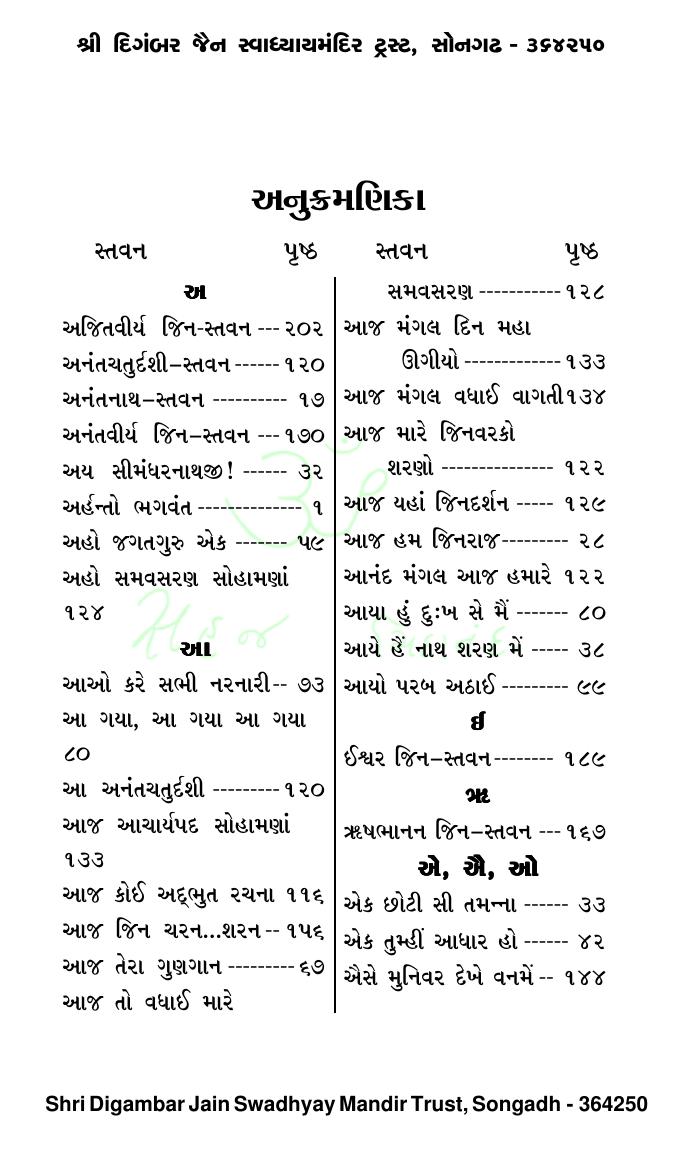 શ્રી દિગંબર જૈન સ્વાધ્યાયમંદિર ટ્રસ્ટ, સોનગઢ - ૩૬૪૨૫૦
અનુક્રમણિકા
સ્તવન પૃષ્ઠ
અ
અજિતવીર્ય જિન-સ્તવન --- ૨૦૨
અનંતચતુર્દશી–સ્તવન ------ ૧૨૦
અનંતનાથ–સ્તવન ---------- ૧૭
અનંતવીર્ય જિન–સ્તવન --- ૧૭૦
અય સીમંધરનાથજી! ------ ૩૨
અર્હન્તો ભગવંત -------------- ૧
અહો જગતગુરુ એક ------- ૫૯
અહો સમવસરણ સોહામણાં
૧૨૪
આ
આઓ કરે સભી નરનારી-- ૭૩
આ ગયા, આ ગયા આ ગયા
૮૦
આ અનંતચતુર્દશી --------- ૧૨૦
આજ આચાર્યપદ સોહામણાં
૧૩૩
આજ કોઈ અદ્ભુત રચના ૧૧૬
આજ જિન ચરન...શરન -- ૧૫૬
આજ તેરા ગુણગાન --------- ૬૭
આજ તો વધાઈ મારે
સ્તવન પૃષ્ઠ
સમવસરણ ----------- ૧૨૮
આજ મંગલ દિન મહા
ઊગીયો ------------- ૧૩૩
આજ મંગલ વધાઈ વાગતી૧૩૪
આજ મારે જિનવરકો
શરણો --------------- ૧૨૨
આજ યહાં જિનદર્શન ----- ૧૨૯
આજ હમ જિનરાજ--------- ૨૮
આનંદ મંગલ આજ હમારે ૧૨૨
આયા હું દુઃખ સે મૈં ------- ૮૦
આયે હૈં નાથ શરણ મેં ----- ૩૮
આયો પરબ અઠાઈ --------- ૯૯
ઈ
ઈશ્વર જિન–સ્તવન-------- ૧૮૯
ઋ
ઋષભાનન જિન–સ્તવન --- ૧૬૭
એ, ઐ, ઓ
એક છોટી સી તમન્ના ------ ૩૩
એક તુમ્હીં આધાર હો ------ ૪૨
ઐસે મુનિવર દેખે વનમેં -- ૧૪૪
ૐ
સહજ
Shri Digambar Jain Swadhyay Mandir Trust, Songadh - 364250